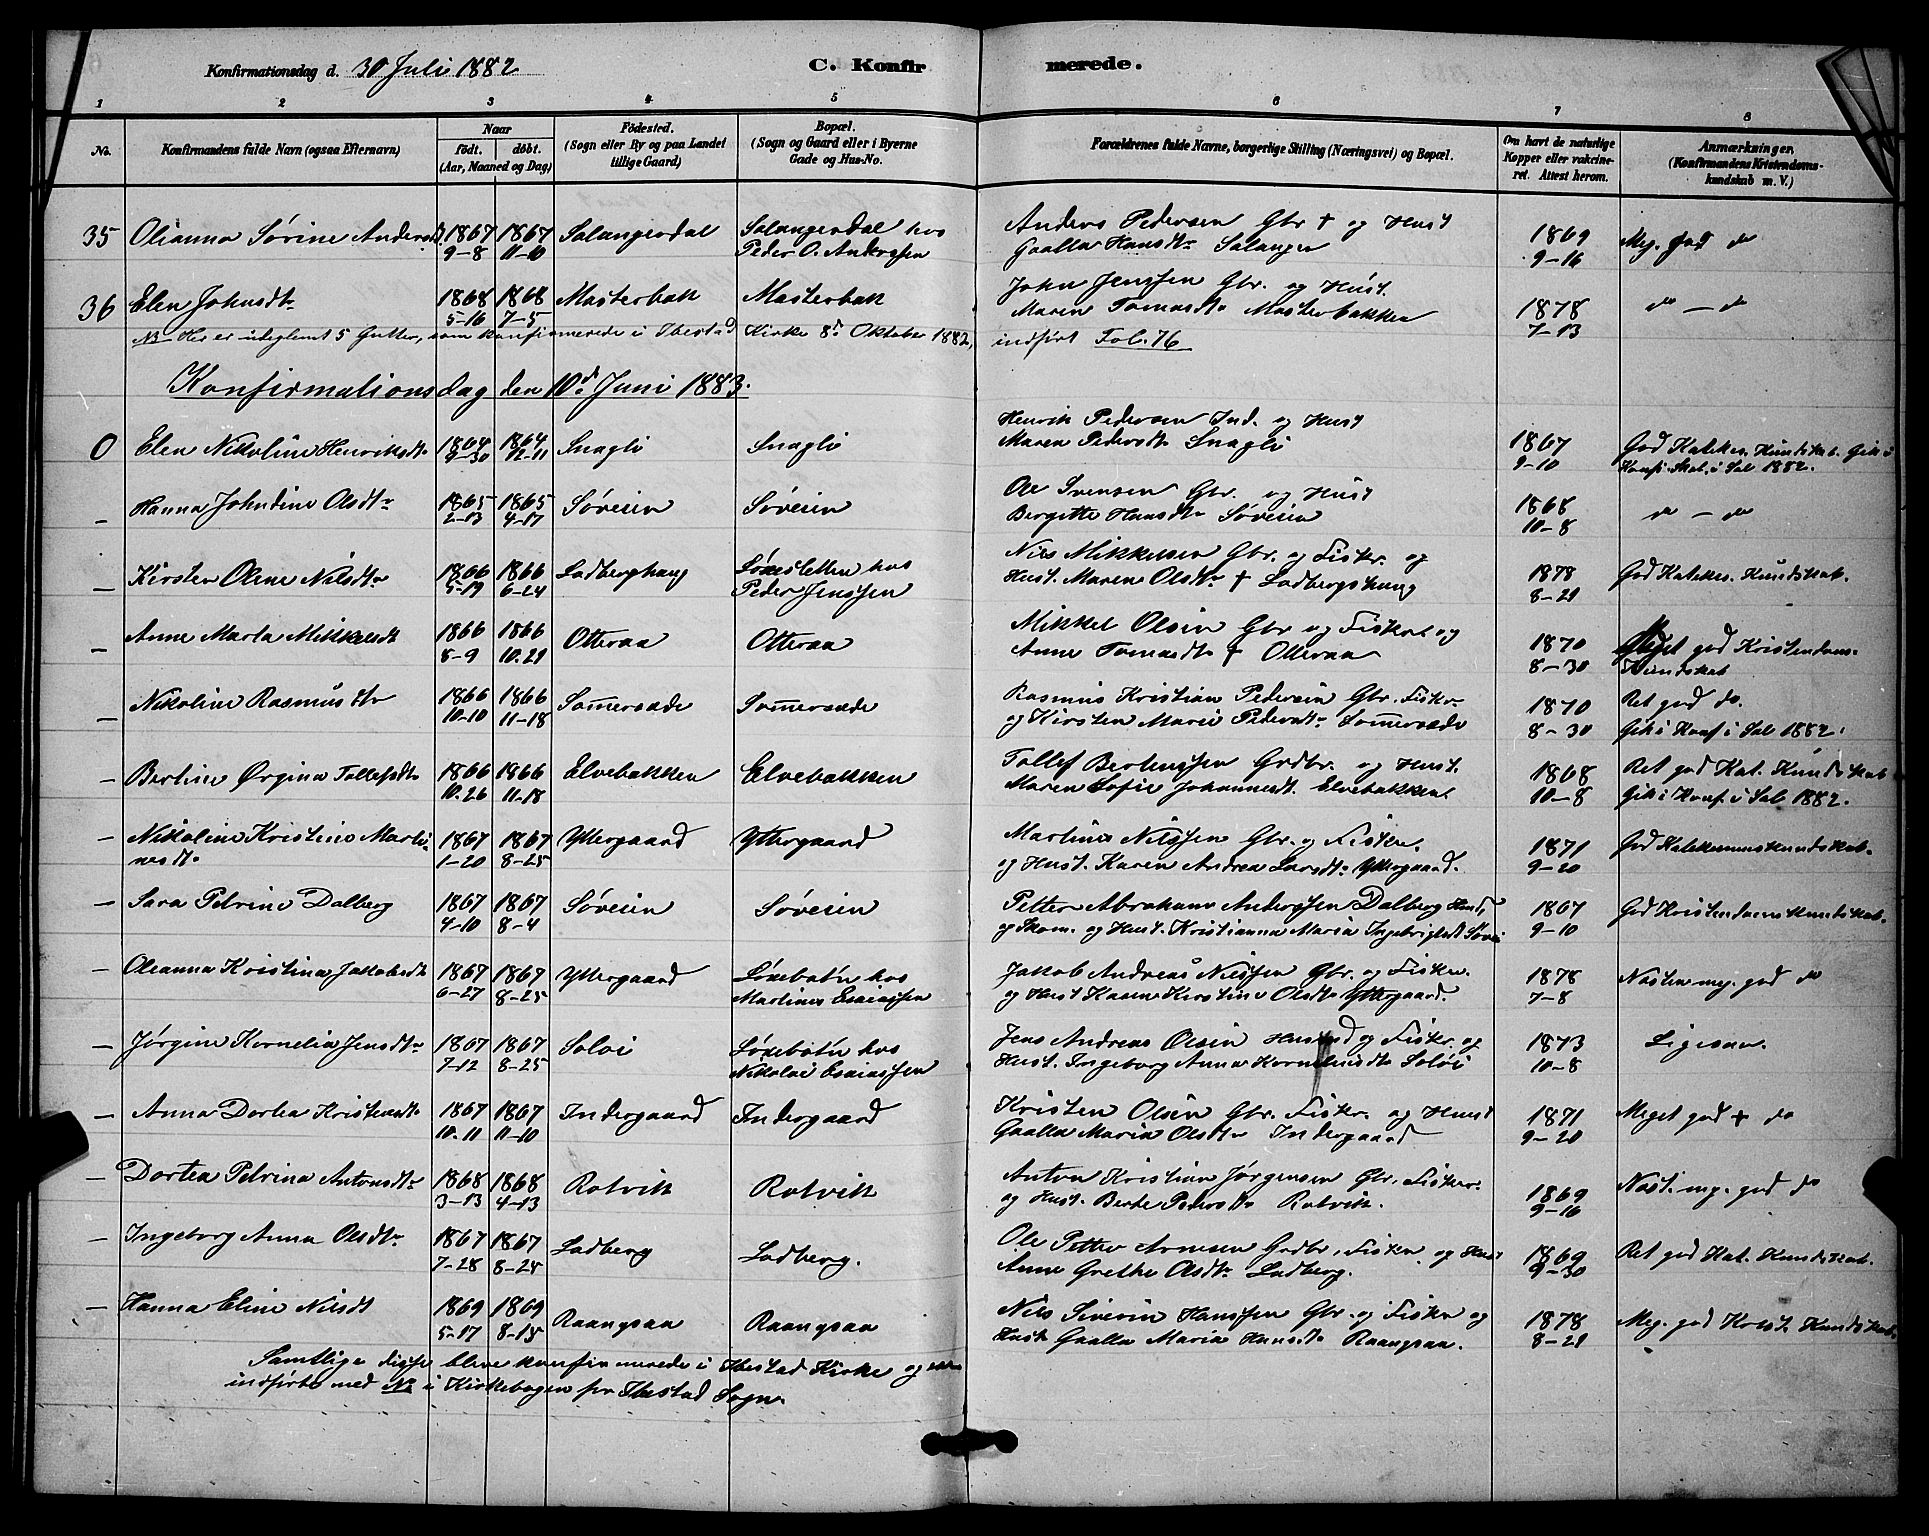 Konfirmationsdag d. 30 Juli 1882 C. Konfirmerede.
1 2 3 4 5 6 7 8
No. Konfirmandens fulde Navn (ogsaa Efternavn) Naar födt. döbt. (Aar, Maaned og Dag) Födested. (Sogn eller By og paa Landet tillige Gaard) Bopæl. (Sogn og Gaard eller i Byerne Gade og Hus-No. Forældrenes fulde Navne, borgerlige Stilling (Næringsvei) og Bopæl. Om havt de naturlige Kopper eller vakcineret. Attest herom. Anmærkninger. (Konfirmandens Kristendomskundskab m. V.)
35 Olianna Sørine Andersd. 1867 1867 Salangsdal Salangsdal hos Anders Pedersen Gbr † og Hust 1869 Meg. god do
9-8 11-10 Peder O. Anderssen Gaalla Hansdtr Salangen 9-16
36 Elen Johnsdtr 1868 1868 Masterbak Masterbak John Jenssen Gbr. og Hust. 1878 do — do
5-16 7-5 Maren Tomasdtr Masterbakken 7-13
NB Her er uteglemt 5 Gutter, som konfirmerede i Ibestad Kirke 8de Oktober 1882, indført Fol. 76
Konfirmationsdag den 10de Juni 1883.
0 Elen Nikoline Henriksdtr 1864 1864 Snagli Snagli Henrik Pedersen Ind. og Hust 1867 God Katekes. Kundskab. Gik i
9-30 12-11 Maren Pedersdtr Snagli 9-10 Konf. Skol. i Sal 1882.
– Hanna Johndine Olsdtr 1865 1865 Søveien Søveien Ole Svensen Gbr. og Hust 1868 do — do
2-13 4-17 Bergitte Hansdtr Søveien 10-8
– Kirsten Oline Nilsdtr 1866 1866 Ladberghaug Løxesletten hos Nils Mikkelsen Gbr. og Fisker. og 1878 God Katekes. Kundskab.
5-19 6-24 Peder Jenssen Hust. Maren Olsdtr † Ladbergshaug 8-21
– Anne Marta Mikkelsdt 1866 1866 Otteraa Otteraa Mikkel Olsen Gbr og Fisker og 1870 Meget god Kristendoms-
8-9 10-21 Anne Tomasdtr † Otteraa 8-30 Kundskab
– Nikoline Rasmusdtr 1866 1866 Sommersæde Sommersæde Rasmus Kristian Pedersen Gbr. Fisker 1870 Ret god do.
10-10 11-18 og Kirsten Marie Pedersdtr Sommersæde 8-30 Gik i Konf. i Sal 1882.
– Berline Ørgina Tollefsdtr 1866 1866 Elvebakken Elvebakken Tollef Berteussen Grdbr. og Hust. 1868 Ret god Kat. Kundskab
10-26 11-18 Maren Sofie Johannesdt. Elvebakken 10-8 Gik i Konf. i Sal 1882.
– Nikoline Kristine Marti- 1867 1867 Yttergaard Yttergaard Martinus Nilssen Gbr. og Fisker. 1871 God Katekismuskundskab.
nesdtr 1-20 8-25 og Hust. Karen Andrea Larsdtr Yttergaard. 9-20
– Sara Petrine Dalberg 1867 1867 Søveien Søveien Petter Abraham Anderssen Dalberg Husmd 1867 God Kristendomskundskab.
4-10 8-4 og Skom. og Hust. Kristianna Maria Ingebrigtsdt Søvei 9-10
– Oleanna Kristina Jakobsdt 1867 1867 Yttergaard Løxebotn hos Jakob Andreas Nilssen Gbr. og Fisker. 1878 Næsten meg. god do
6-27 8-25 Martines Esaiassen og Hust Karen Kirstine Olsdtr Yttergaard. 7-8
– Jørgine Kornelia Jensdtr 1867 1867 Soløi Løxebotn hos Jens Andreas Olsen Husmd og Fisker. og 1873 Ligesaa.
7-12 8-25 Nikolai Esaiassen Hust. Ingeborg Anna Korneliusdtr Soløi 10-8
– Anna Dortea Kristensdtr 1867 1867 Indergaard Indergaard Kristen Olsen Gbr. Fisker. og Hust 1871 Meget god + do
10-11 11-10 Gaalla Maria Olsdtr Indergaard 9-20
– Dortea Petrina Antonsdtr 1868 1868 Rotvik Rotvik Anton Kristian Jørgensen Gbr. Fisker. 1869 Næst. mg. god do
3-13 4-13 og Hust. Berte Pedersdtr Rotvik. 9-16
– Ingeborg Anna Olsdtr 1867 1867 Ladberg Ladberg. Ole Petter Arnesen Grdbr. Fisker og Hust 1869 Ret god Kat. Kundskab.
7-28 8-24 Anne Grethe Olsdtr Ladberg. 9-30
– Hanna Eline Nilsdt 1869 1869 Raangsaa Raangsaa Nils Siverin Hanssen Gbr. og Fisker og 1878 Meg. god Krist. Kundskab.
5-17 8-15 Hust Gaalla Maria Hansdtr Raangsaa. 8-21
Samtlige disse bleve konfirmerede i Ibestad Kirke og ere
indførte med No i Kirkebogen for Ibestad Sogn.